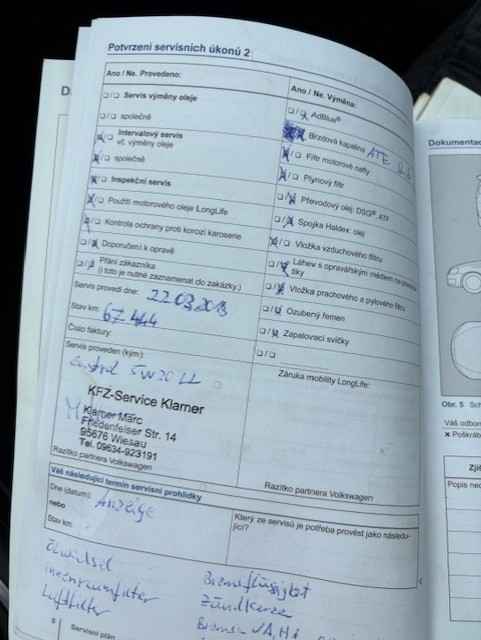 Potvrzení servisních úkonů 2
Ano / Ne. Provedeno:
Servis výměny oleje
společně
Intervalový servis
vč. výměny oleje
společně
Inspekční servis
Použití motorového oleje LongLife
Kontrola ochrany proti korozi karoserie
Doporučení k opravě
Přání zákazníka
(i toto je nutné zaznamenat do zakázky.)
Servis provedl dne:
Stav km: 67 444
Číslo faktury:
Servis proveden (kým):
Castrol 5W30 LL
KFZ-Service Klarner
Klarner Marc
Friedenfelser Str. 14
95676 Wiesau
Tel. 09634-923191
Razítko partnera Volkswagen
Ano / Ne. Výměna:
AdBlue®
Brzdová kapalina ATE
Filtr motorové nafty
Plynový filtr
Převodový olej: DSG®
Spojka Haldex: olej
Vložka vzduchového filtru
Láhev s opravářským médiem na
tiky
Vložka prachového a pylového filtru
Ozubený řemen
Zapalovací svíčky
Záruka mobility LongLife:
Razítko partnera Volkswagen
Váš následující termín servisní prohlídky
Dne (datum): Anzeige
nebo
Stav km:
Který ze servisů je potřeba provést jako následu-
jící?
Ölwechsel
Innenraumfilter
Luftfilter
Bremsflüssigkeit
Zündkerze
Bremsen VA, HA
Servisní plán
Dokumentac
Obr. 5
Váš odbor
Poškrába
Zjiš
Popis ned